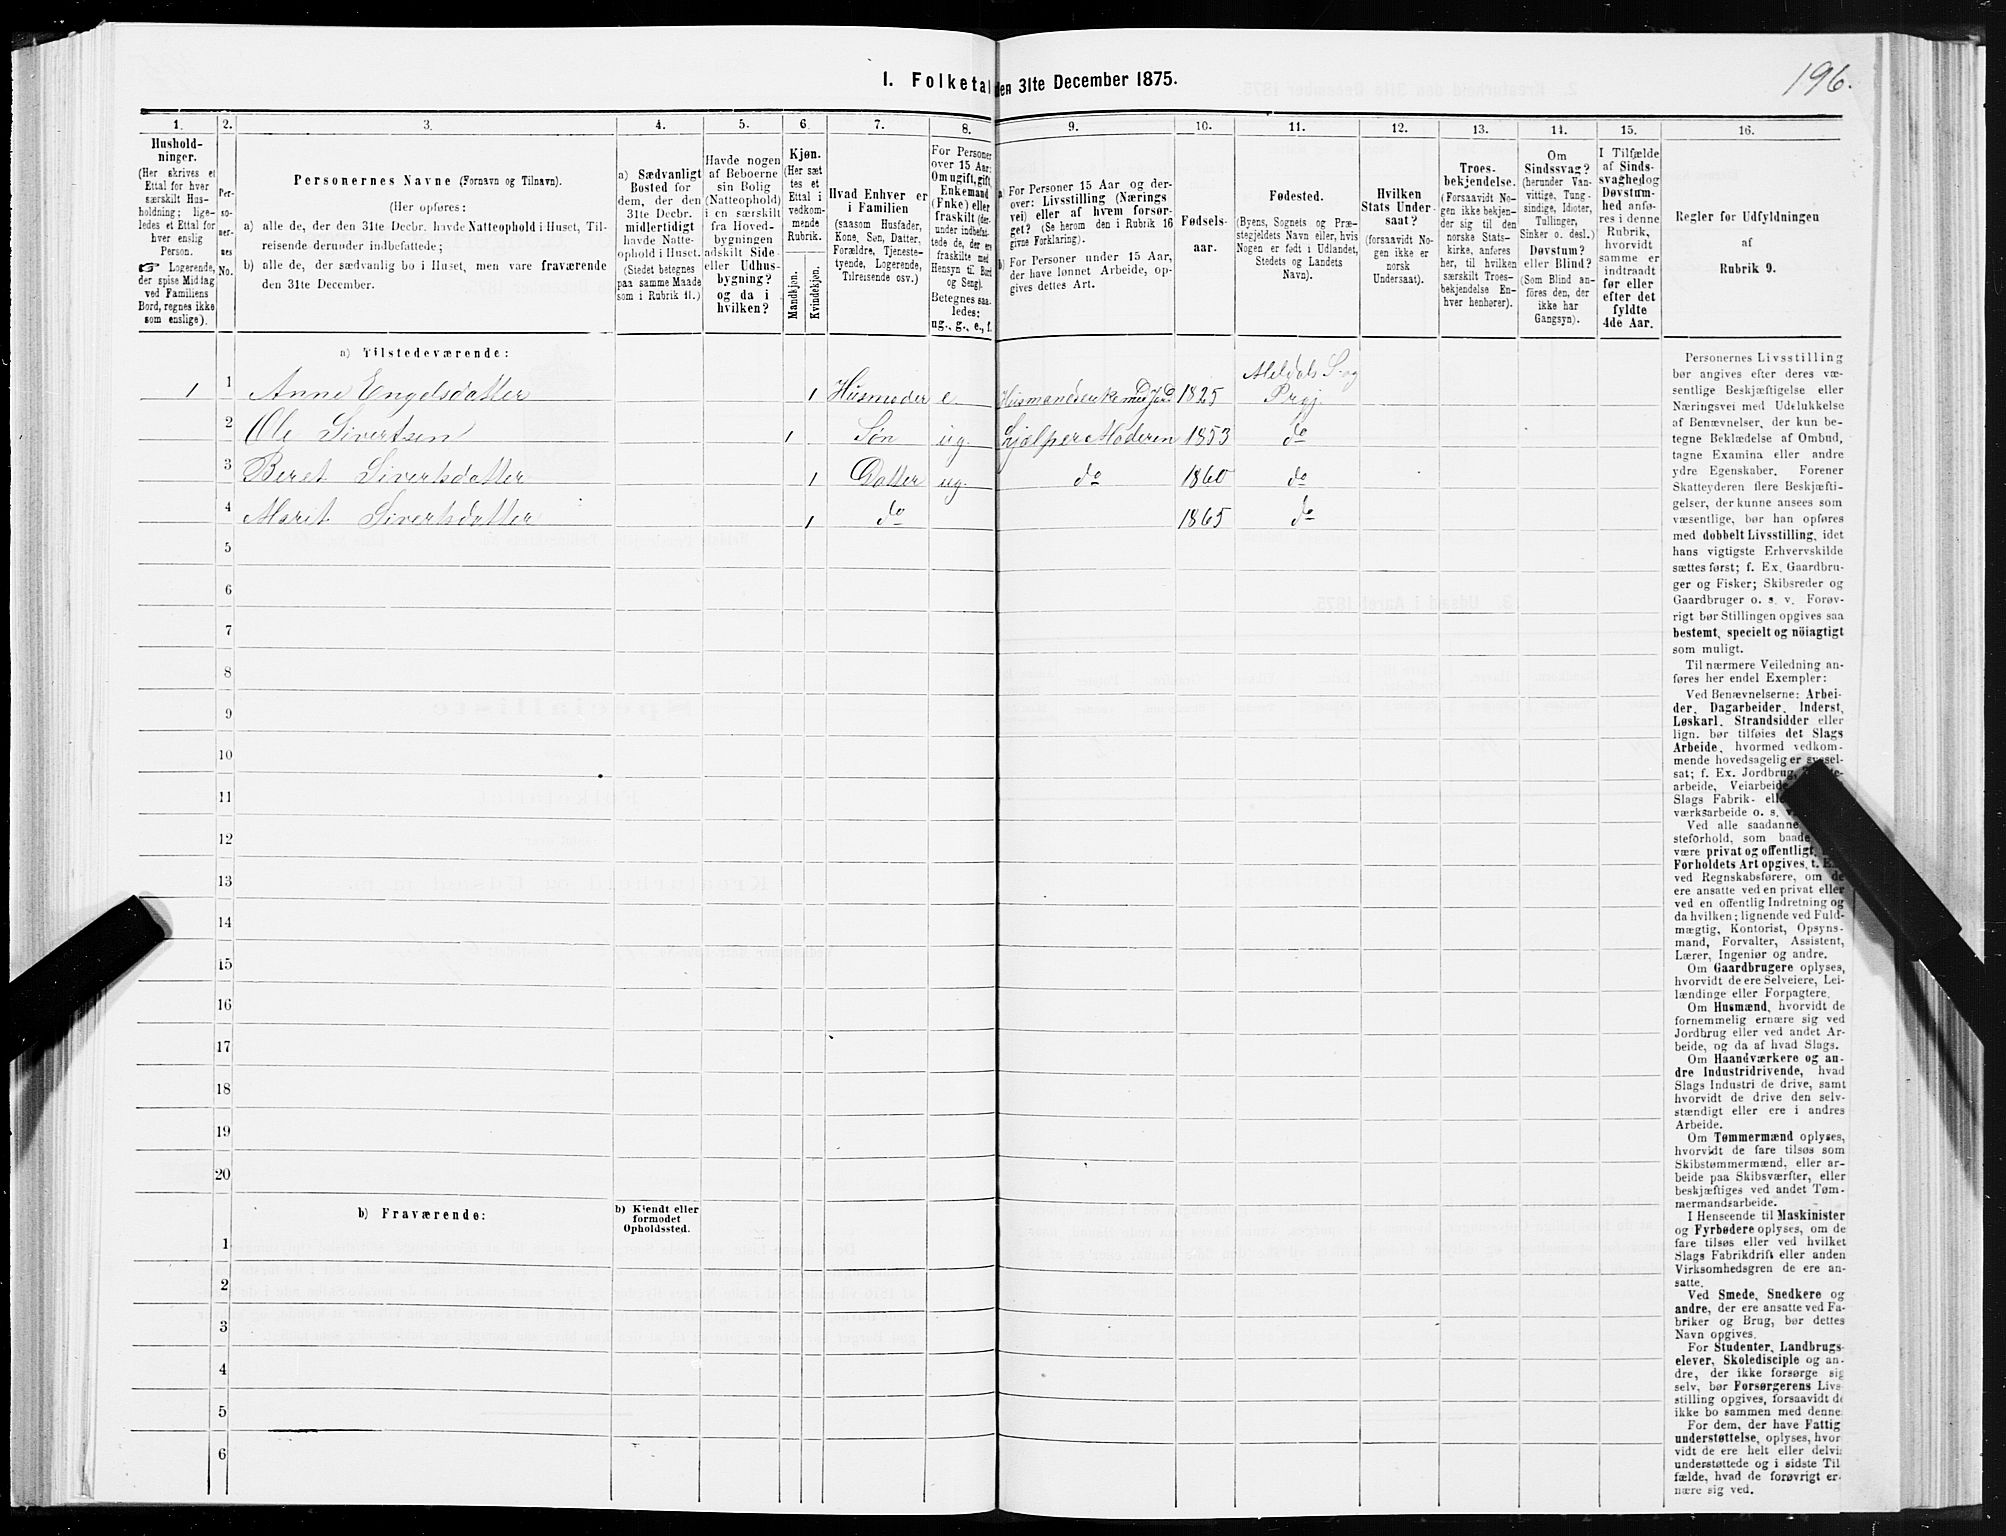 196.
I. Folketal den 31te December 1875.
1. 2. 3. 4. 5. 6. 7. 8. 9. 10. 11. 12. 13. 14. 15. 16.
Hushold-
ninger.
(Her skrives et
Ettal for hver
særskilt Hus-
holdning; lige-
ledes et Ettal for
hver enslig
Person.
☞ Logerende,
der spise Middag
ved Familiens
Bord, regnes ikke
som enslige).
Per-
so-
ner-
nes
No.
Personernes Navne (Fornavn og Tilnavn).
(Her opføres:
a) alle de, der den 31te Decbr. havde Natteophold i Huset, Til-
reisende derunder indbefattede;
b) alle de, der sædvanlig bo i Huset, men vare fraværende
den 31te December.
a) Sædvanligt
Bosted for
dem, der den
31te Decbr.
midlertidigt
havde Natte-
ophold i Huset.
(Stedet betegnes
paa samme Maade
som i Rubrik 11.)
Havde nogen
af Beboerne
sin Bolig
(Natteophold)
i en særskilt
fra Hoved-
bygningen
adskilt Side-
eller Udhus-
bygning?
og da i
hvilken?
Kjøn.
(Her sæt
tes et
Ettal i
vedkom-
mende
Rubrik.
Mandkjøn.
Kvindekjøn.
Hvad Enhver er
i Familien
(saasom Husfader,
Kone, Søn, Datter,
Forældre, Tjeneste-
tyende, Logerende,
Tilreisende osv.)
For Personer
over 15 Aar:
Om ugift, gift,
Enkemand
(Enke) eller
fraskilt (der-
under indbefat-
tede de, der ere
fraskilte med
Hensyn til Bord
og Seng).
Betegnes saa-
ledes:
ug., g., e., f.
a) For Personer 15 Aar og der-
over: Livsstilling (Nærings
vei) eller af hvem forsør-
get? (Se herom den i Rubrik 16
givne Forklaring).
b) For Personer under 15 Aar,
der have lønnet Arbeide, op-
gives dettes Art.
Fødsels-
aar.
Fødested.
(Byens, Sognets og Præ-
stegjeldets Navn eller, hvis
Nogen er født i Udlandet,
Stedets og Landets
Navn).
Hvilken
Stats Under-
saat?
(forsaavidt No-
gen ikke er
norsk
Undersaat).
Troes-
bekjendelse.
(Forsaavidt No-
gen ikke bekjen-
der sig til den
norske Stats-
kirke, anføres
her, til hvilken
særskilt Troes-
bekjendelse En-
hver henhører).
Om
Sindssvag?
(herunder Van-
vittige, Tung-
sindige, Idioter,
Tullinger,
Sinker o. desl.)
Døvstum?
eller Blind?
(Som Blind an-
føres den, der
ikke har
Gangsyn).
I Tilfælde
af Sinds-
svaghed og
Døvstum-
hed anfø-
res i denne
Rubrik,
hvorvidt
samme er
indtraadt
før eller
efter det
fyldte
4de Aar.
Regler for Udfyldningen
af
Rubrik 9.
a) Tilstedeværende:
1 1 Anne Engelsdatter 1 Husmoder e. Husmandsenke med Jord 1825 Meldals S. og Prgj.
2 Ole Sivertsen 1 Søn ug. Hjælper Moderen 1853 do
3 Beret Sivertsdatter 1 Datter ug. do 1860 do
4 Maret Sivertsdatter 1 do 1865 do
5
6
7
8
9
10
11
12
13
14
15
16
17
18
19
20
b) Fraværende:
b) Kjendt eller
formodet
Opholdssted.
1
2
3
4
5
6
Personernes Livsstilling
bør angives efter deres væ-
sentlige Beskjæftigelse eller
Næringsvei med Udelukkelse
af Benævnelser, der kun be-
tegne Beklædelse af Ombud,
tagne Examina eller andre
ydre Egenskaber. Forener
Skatteyderen flere Beskjæfti-
gelser, der kunne ansees som
væsentlige, bør han opføres
med dobbelt Livsstilling, idet
hans vigtigste Erhvervskilde
sættes først; f. Ex. Gaardbru-
ger og Fisker; Skibsreder og
Gaardbruger o. s. v. Forøv-
rigt bør Stillingen opgives saa
bestemt, specielt og nöiagtigt
som muligt.
Til nærmere Veiledning an-
føres her endel Exempler:
Ved Benævnelserne: Arbei-
der, Dagarbeider, Inderst,
Løskarl, Strandsidder eller
lign. bør tilføies det Slags
Arbeide, hvormed vedkom-
mende hovedsagelig er syssel-
sat; f. Ex. Jordbrug,
arbeide, Veiarbeide
Slags Fabrik-
værksarbeide o. s.
Ved alle saadanne
steforhold, som baade
være privat og offentligt,
Forholdets Art opgives, t. Ex.
ved Regnskabsførere, om de
ere ansatte ved en privat eller
ved en offentlig Indretning og
da hvilken; lignende ved Fuld-
mægtig, Kontorist, Opsyns-
mand, Forvalter, Assistent,
Lærer, Ingeniør og andre.
Om Gaardbrugere oplyses,
hvorvidt de ere Selveiere, Lei-
lændinge eller Forpagtere.
Om Husmænd, hvorvidt de
fornemmelig ernære sig ved
Jordbrug eller ved andet Ar-
beide, og da af hvad Slags.
Om Haandværkere og an-
dre Industridrivende, hvad
Slags Industri de drive, samt
hvorvidt de drive den selv-
stændigt eller ere i andres
Arbeide.
Om Tømmermænd oplyses,
hvorvidt de fare tilsøs som
Skibstømmermænd, eller ar-
beide paa Skibsværfter, eller
beskjæftiges ved andet Tøm-
mermandsarbeide.
I Henseende til Maskinister
og Fyrbødere oplyses, om de
fare tilsøs eller ved hvilket
Slags Fabrikdrift eller anden
Virksomhedsgren de ere an-
satte.
Ved Smede, Snedkere og
andre, der ere ansatte ved Fa-
briker og Brug, bør dettes
Navn opgives.
For Studenter, Landbrugs-
elever, Skoledisciple og an-
dre, der ikke forsørge sig
selv, bør Forsørgerens Livs-
stilling opgives, forsaavidt de
ikke bo sammen med denne.
For dem, der have Fattig
understøttelse, oplyses, hvor
vidt de ere helt eller delvi
understøttede og i sidste Til
fælde, hvad de forøvrigt er-
nære sig ved.